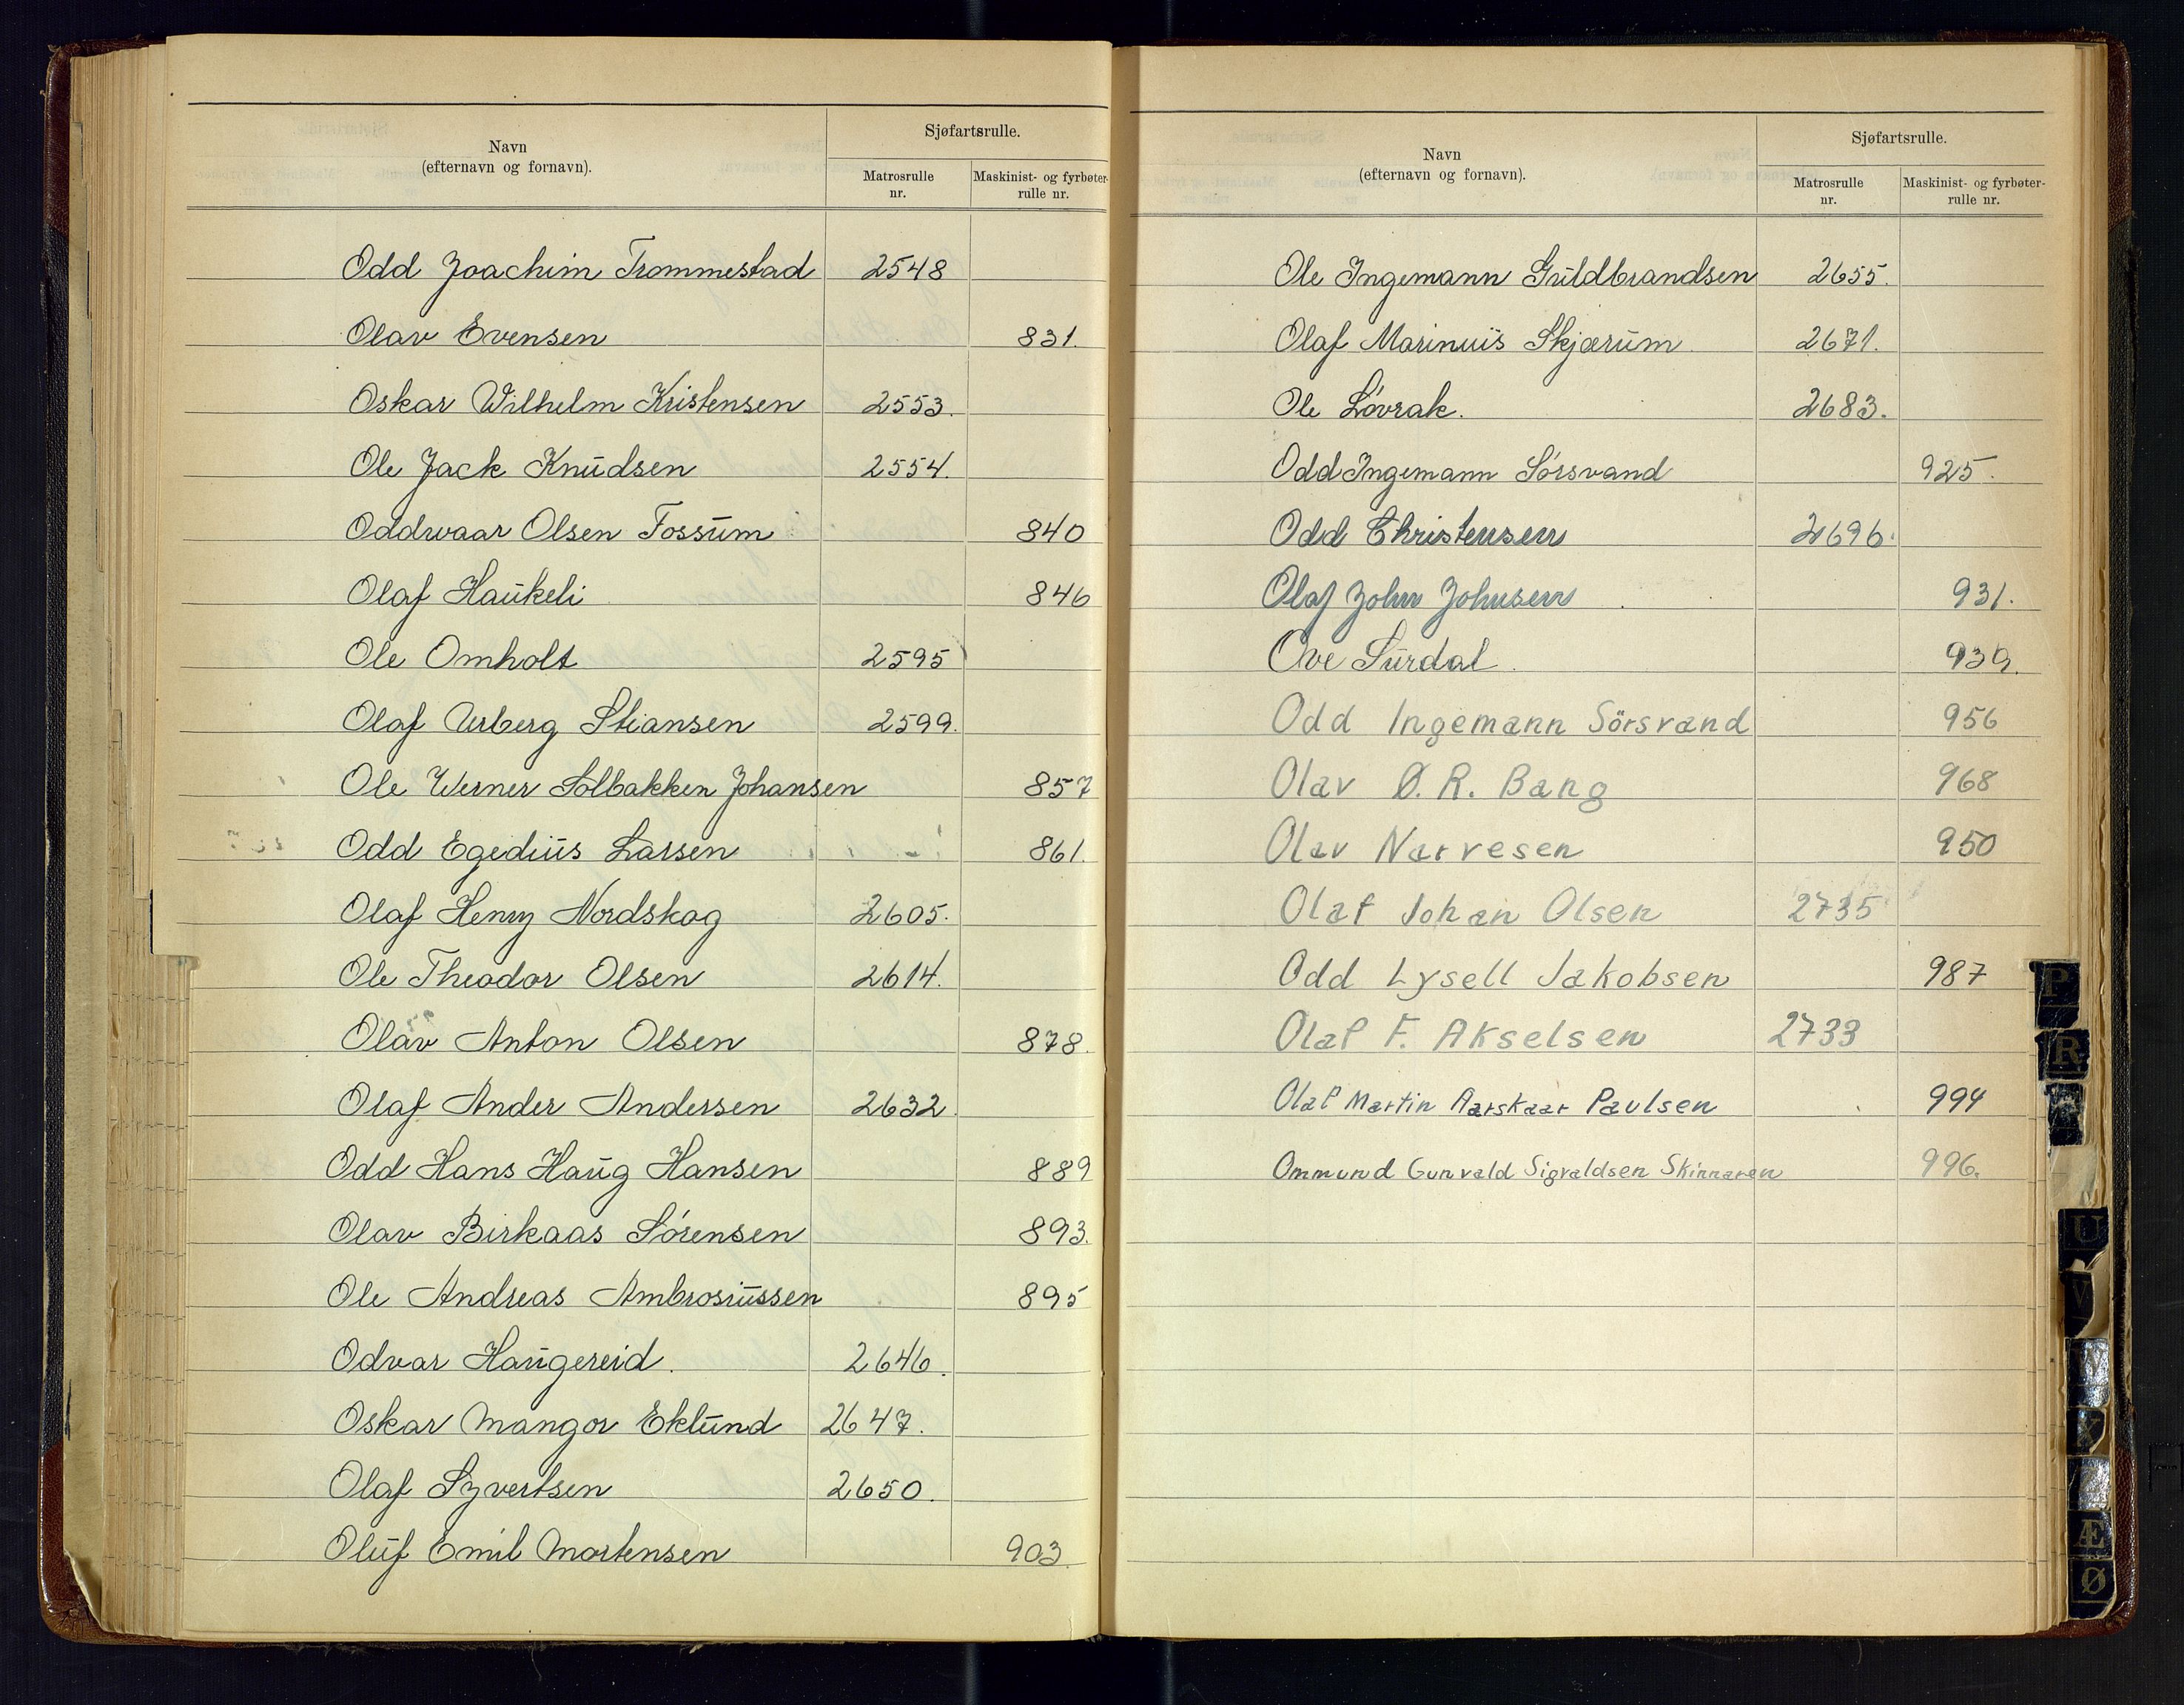 Navn
(efternavn og fornavn).
Sjøfartsrulle.
Matrosrulle nr.
Maskinist- og fyrbøter-rulle nr.
Odd Joachim Trommestad 2548
Olav Evensen 831.
Oskar Wilhelm Kristensen 2553.
Ole Jack Knudsen 2554.
Oddwaar Olsen Fossum 840
Olaf Haukeli 846
Ole Omholt 2595
Olaf Urberg Stiansen 2599.
Ole Werner Solbakken Johansen 857
Odd Egedius Larsen 861.
Olaf Henry Nordskog 2605.
Ole Theodor Olsen 2614.
Olav Anton Olsen 878.
Olaf Ander Andersen 2632.
Odd Hans Haug Hansen 889
Olav Birkaas Sørensen 893.
Ole Andreas Ambrosiussen 895
Odvar Haugereid. 2646.
Oskar Mangor Eklund 2647.
Olaf Syvertsen 2650.
Oluf Emil Mortensen 903.
Navn
(efternavn og fornavn).
Sjøfartsrulle.
Matrosrulle nr.
Maskinist- og fyrbøter-rulle nr.
Ole Ingemann Guldbrandsen 2655.
Olaf Marinius Skjærum 2671.
Ole Løvrak. 2683.
Odd Ingemann Sørsvand 925.
Odd Christensen 2696.
Olaf John Johnsen 931.
Ove Surdal. 939.
Odd Ingemann Sörsvand 956
Olav Ø. R. Bang 968
Olav Narvesen 950
Olaf Johan Olsen 2735
Odd Lysell Jakobsen 987
Olaf F. Akselsen 2733
Olaf Martin Aarskaar Paulsen 994
Ommund Gunvald Sigvaldsen Skinnaren 996.
P
R
U
V
W
Y
Z
Æ
Ø